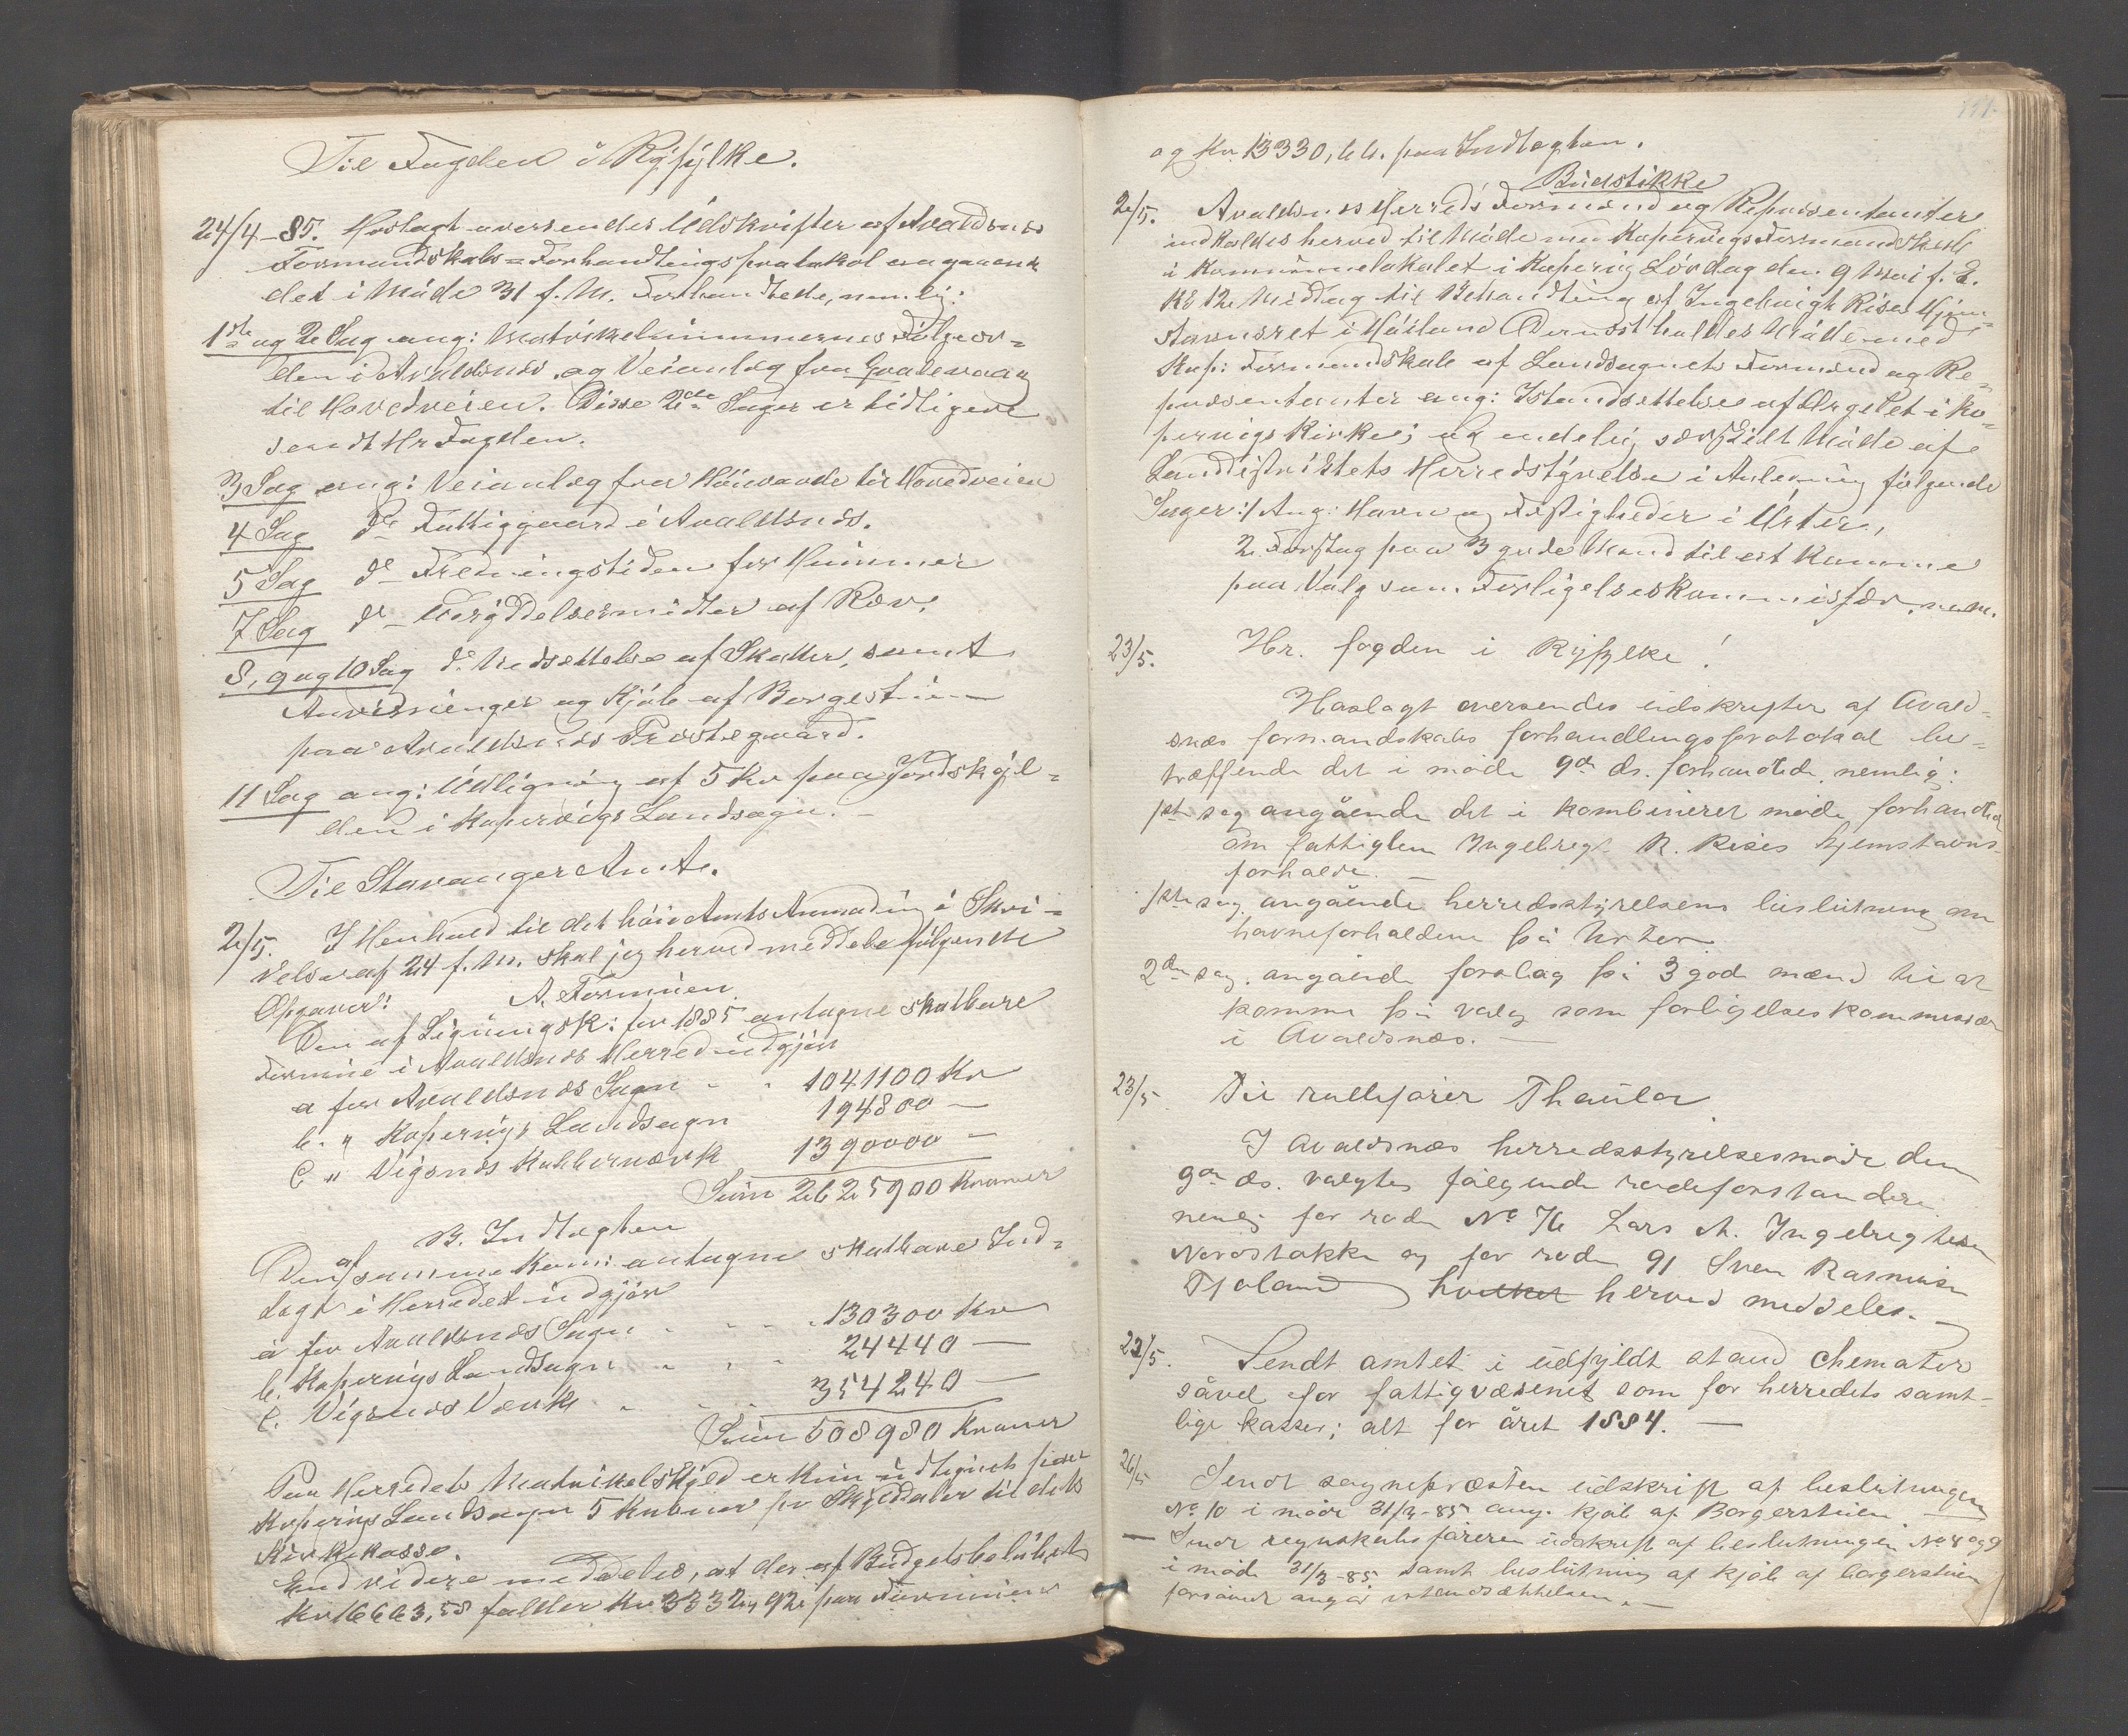 Til Fogden i Ryfylke.
24/4-85. Hoslagt oversendes Udskrifter af Avaldsnes
Formandskabs=Forhandlingsprotokol angaaende
det i Møde 31 f. M. Forhandlede, nemlig:
1ste og 2 Sag ang: Matrikelnummernes Følgeor=
den i Avaldsnes og Veianlæg fra
til Hovedveien. Disse 2de Sager er tidligere
sendt Hr Fogden.
3 Sag ang: Veianlæg fra Høievarde til Hovedveien
4 Sag do Fattiggaard i Avaldsnes.
5 Sag do Fredningstiden for Hummer
7 Sag do Udryddelsesmidler af Ræv.
8, 9 og 10 Sag do Nedsættelse af Skatter, samt
Anvisninger og Kjøb af Borgestuen
paa Avaldsnes Prestegaard.
11 Sag ang: Udligning af 5 Kr paa Jordskyl=
den i Kopervigs Landsogn. –
Til Stavanger Amt.
2/5. I Henhold til det høie Amts Anmodning i Skri=
velse af 24 f. M. skal jeg herved meddele følgende
Opgaver: A. Formuen
Den af Ligningsk: for 1885 antagne skatbare
Formue i Avaldsnes Herred udgjør
a for Avaldsnes Sogn . . 1041100 Kr
b. " Kopervigs Landsogn 194800 —
C " Vigsnes Kobberværk 1390000 —
Sum 2625900 Kroner
B. Indtægten
Den af samme Kom: antagne skatbare Ind=
tægt i Herredet udgjør
a for Avaldsnes Sogn . . . . 130300 Kr
b. Kopervigs Landsogn . . . 24440 —
c. Vigsnes Værk . . . 354240 —
Sum 508980 Kroner
Paa Herredets Matrikelskyld er kun udlignet paa
Kopervigs Landsogn 5 Kroner pr Skylddaler til dets
Kirkekasse.
Endvidere meddeles, at der af Budgetsbeløbet
Kr 16663,58 falder Kr 3332,92 paa Formuen
og Kr 13330,66. paa Indtægten.
Budstikke
2/5. Avaldsnes Herreds Formænd og Repræsentanter
indkaldes herved til Møde med Kopervigs Formandskab
i Kommunelokalet i Kopervig Lørdag den 9 Mai f. E.
Kl 12 Middag til Behandling af Ingebrigt Rises Hjem=
stavnsret i Dernæst holdes Møde med
Kop: Formandskab af Landsognets Formænd og Re=
præsentanter ang: Istandsættelse af Orgelet i Ko=
pervigs Kirke; og endelig særskilt Møde af
Landdistriktets Herredstyrelse i Anledning følgende
Sager: 1 Ang: Havn og Festigheder i Urter,
2. Forslag paa 3 gode Mænd til at komme
paa Valg som Forligelseskommissær m.m.
23/5. Hr. fogden i Ryfylke!
Hoslagt oversendes udskrifter af Avald=
snæs formandskabs forhandlingsprotokol be=
træffende det i møde 9de ds. forhandlede, nemlig:
1ste sag angående det i kombineret møde forhandlede
om fattiglem Ingebregt R. Rises hjemstavns
forhold. —
1ste sag angående herredsstyrelsens beslutning om
havneforholdene på Urter.
2den sag. angående forslag på 3 gode mænd til at
komme på valg som forligelseskommissær
i Avaldsnæs. —
23/5 Til rullefører Thaulov.
I Avaldsnæs herredsstyrelsesmøde den
9de ds. valgtes følgende rodeforstandere
nemlig for rode No 76 Lars M. Ingebrigtsen
Nordstokke og for rode 91 Sven Rasmusen
Tjoland hvilket herved meddeles. —
23/5. Sendt amtet i udfyldt stand chematerne
såvel for fattigvæsenet som for herredets samt=
lige kasser; alt for året 1884. —
26/5 Sendt sognepræsten udskrift af beslutningen
No 10 i møde 31/3-85 ang. kjøb af Borgerstuen.
— Sendt regnskabsføreren udskrift af beslutningen No 8 og 9
i møde 31/3-85 samt beslutning af kjøb af borgerstuen
forsåvidt angår istandsættelsen. —